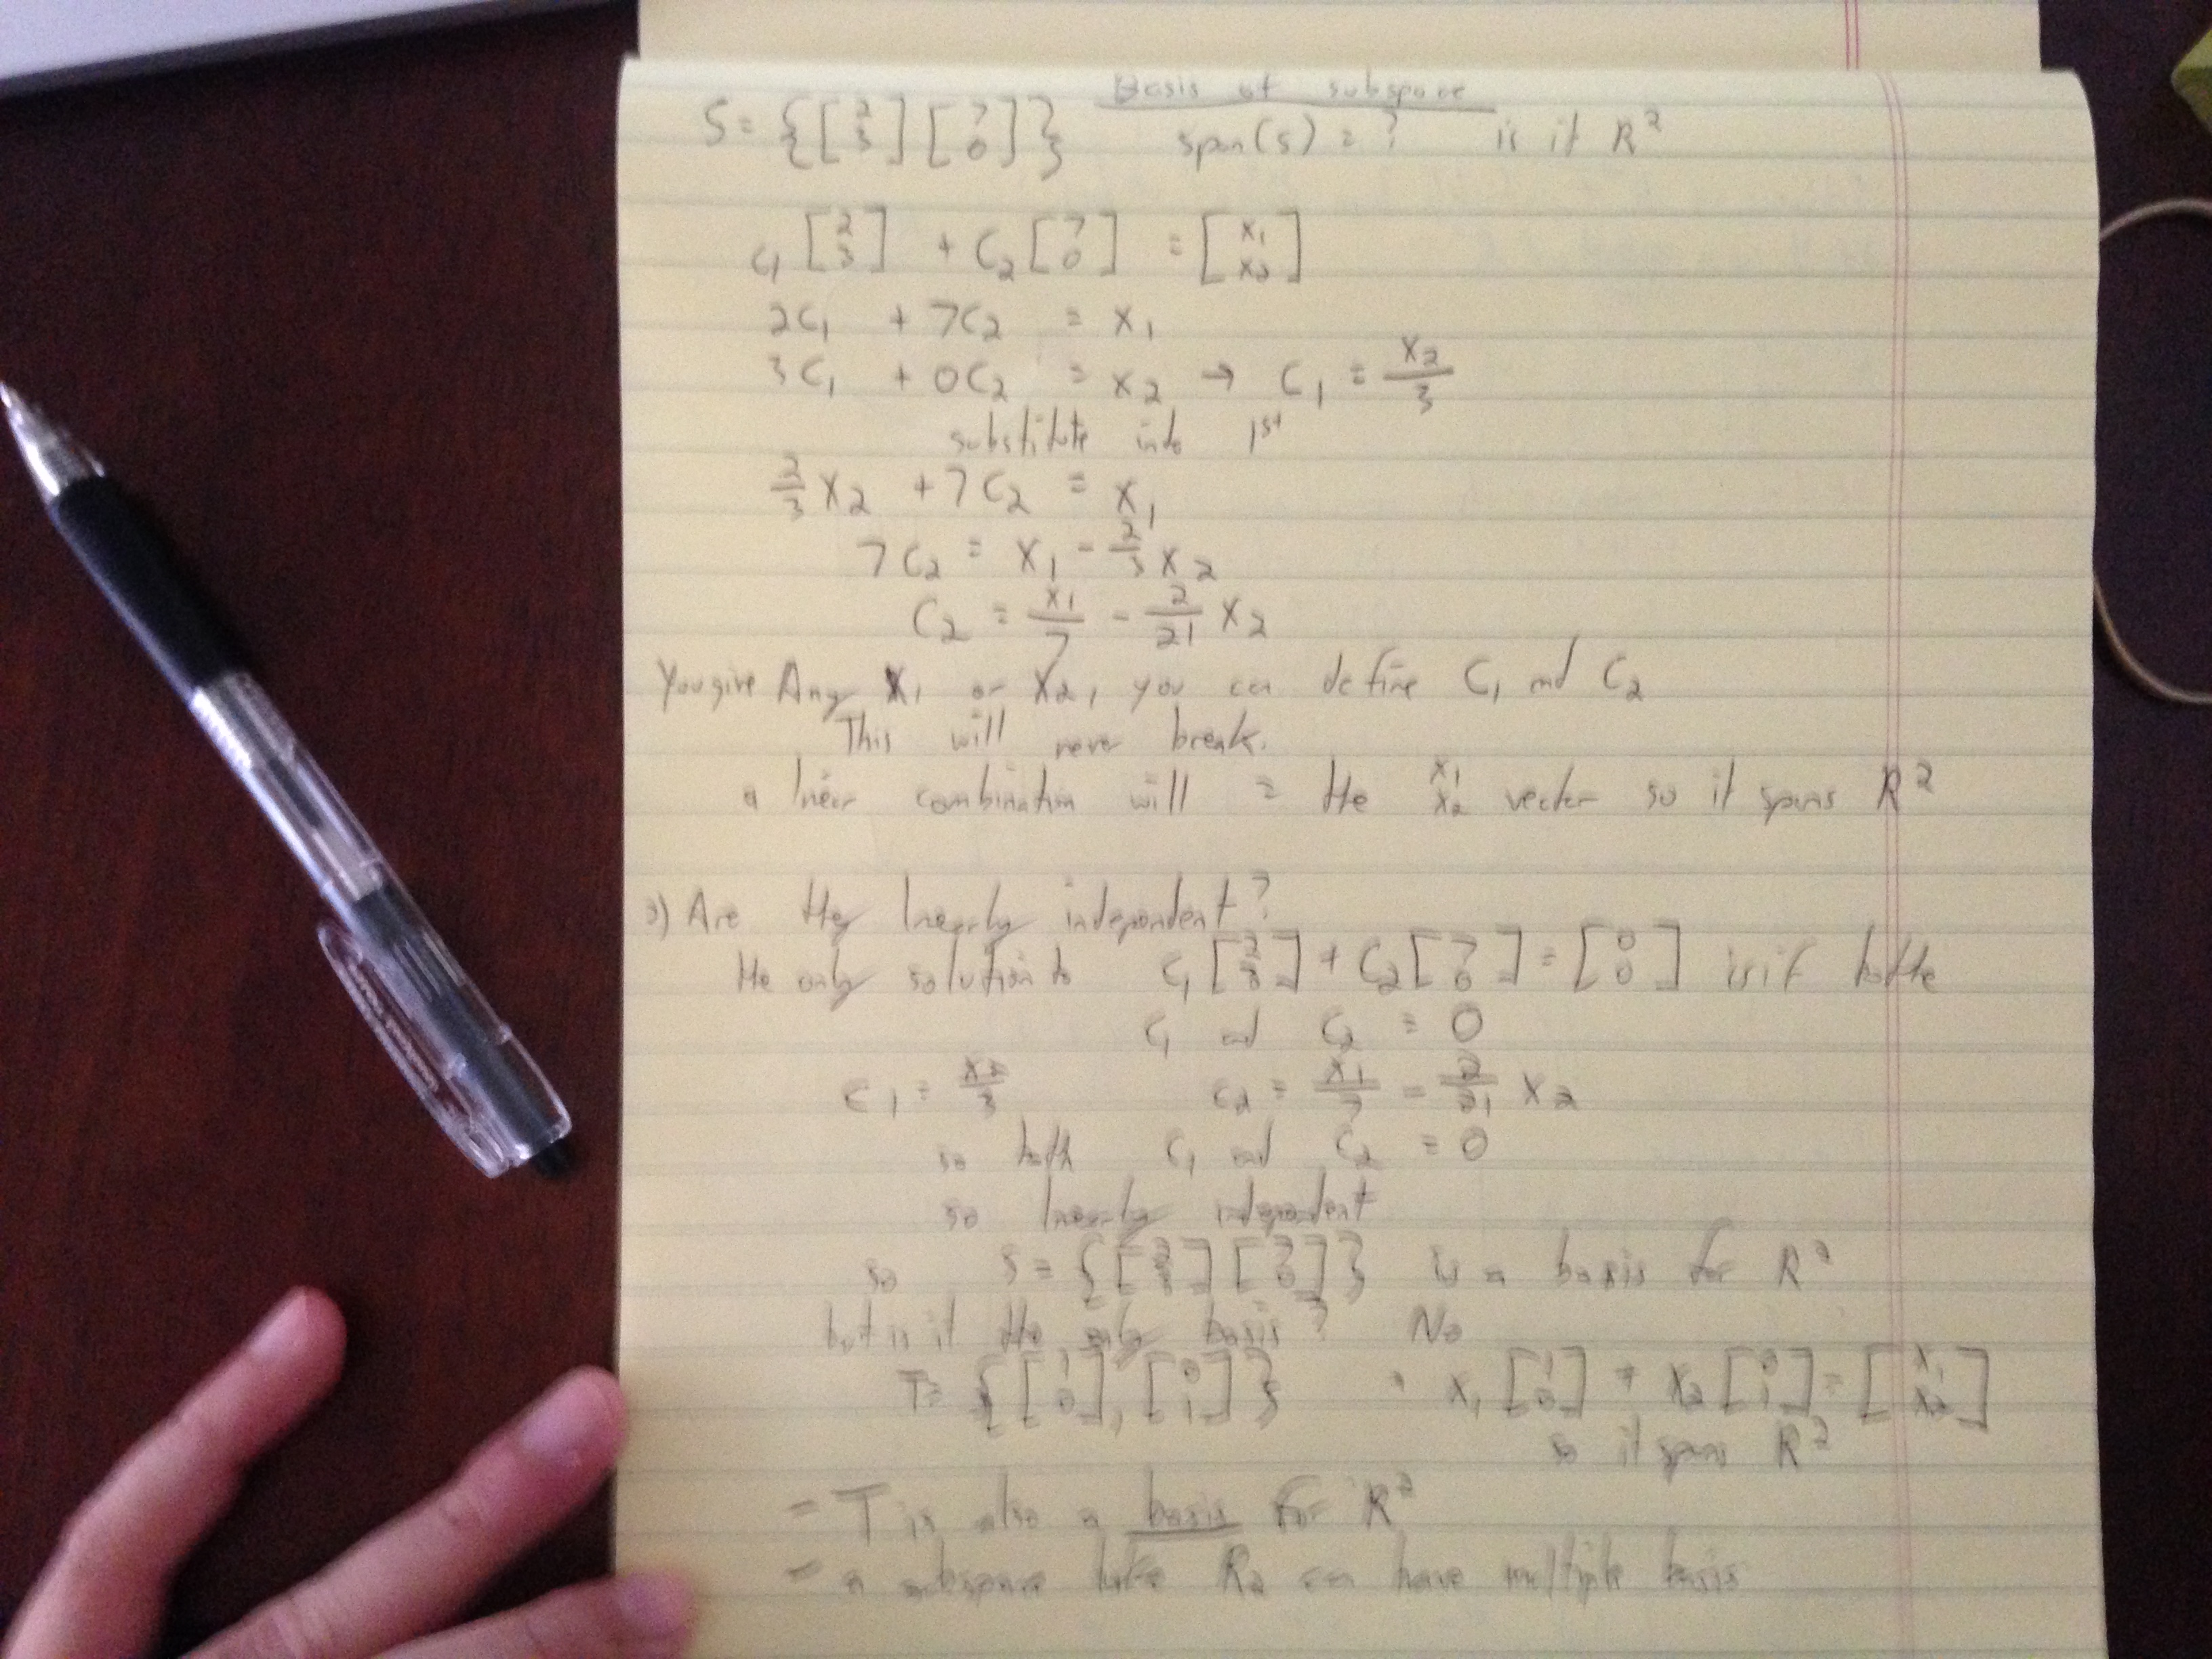 Basis of subspace
S = {[2 3] [7 0]} span(s) = ? is it R²
C₁ [2 3] + C₂ [7 0] = [x₁ x₂]
2C₁ + 7C₂ = x₁
3C₁ + 0C₂ = x₂ → C₁ = x₂/3
substitute into 1st
2/3 x₂ + 7C₂ = x₁
7C₂ = x₁ - 2/3 x₂
C₂ = x₁/7 - 2/21 x₂
You give Any x₁ or x₂, you can define C₁ and C₂
This will never break.
a linear combination will = the x₁ x₂ vector so it spans R²
2) Are they linearly independent?
the only solution to C₁[2 3] + C₂[7 0] = [0 0] is if both
C₁ and C₂ = 0
C₁ = x₂/3 C₂ = x₁/7 - 2/21 x₂
so both C₁ and C₂ = 0
so linearly independent
so S = {[2 3] [7 0]} is a basis for R²
but is it the only basis? No
T = {[1 0], [0 1]} x₁[1 0] + x₂[0 1] = [x₁ x₂]
so it spans R²
= T is also a basis for R²
- a subspace like R₂ can have multiple basis